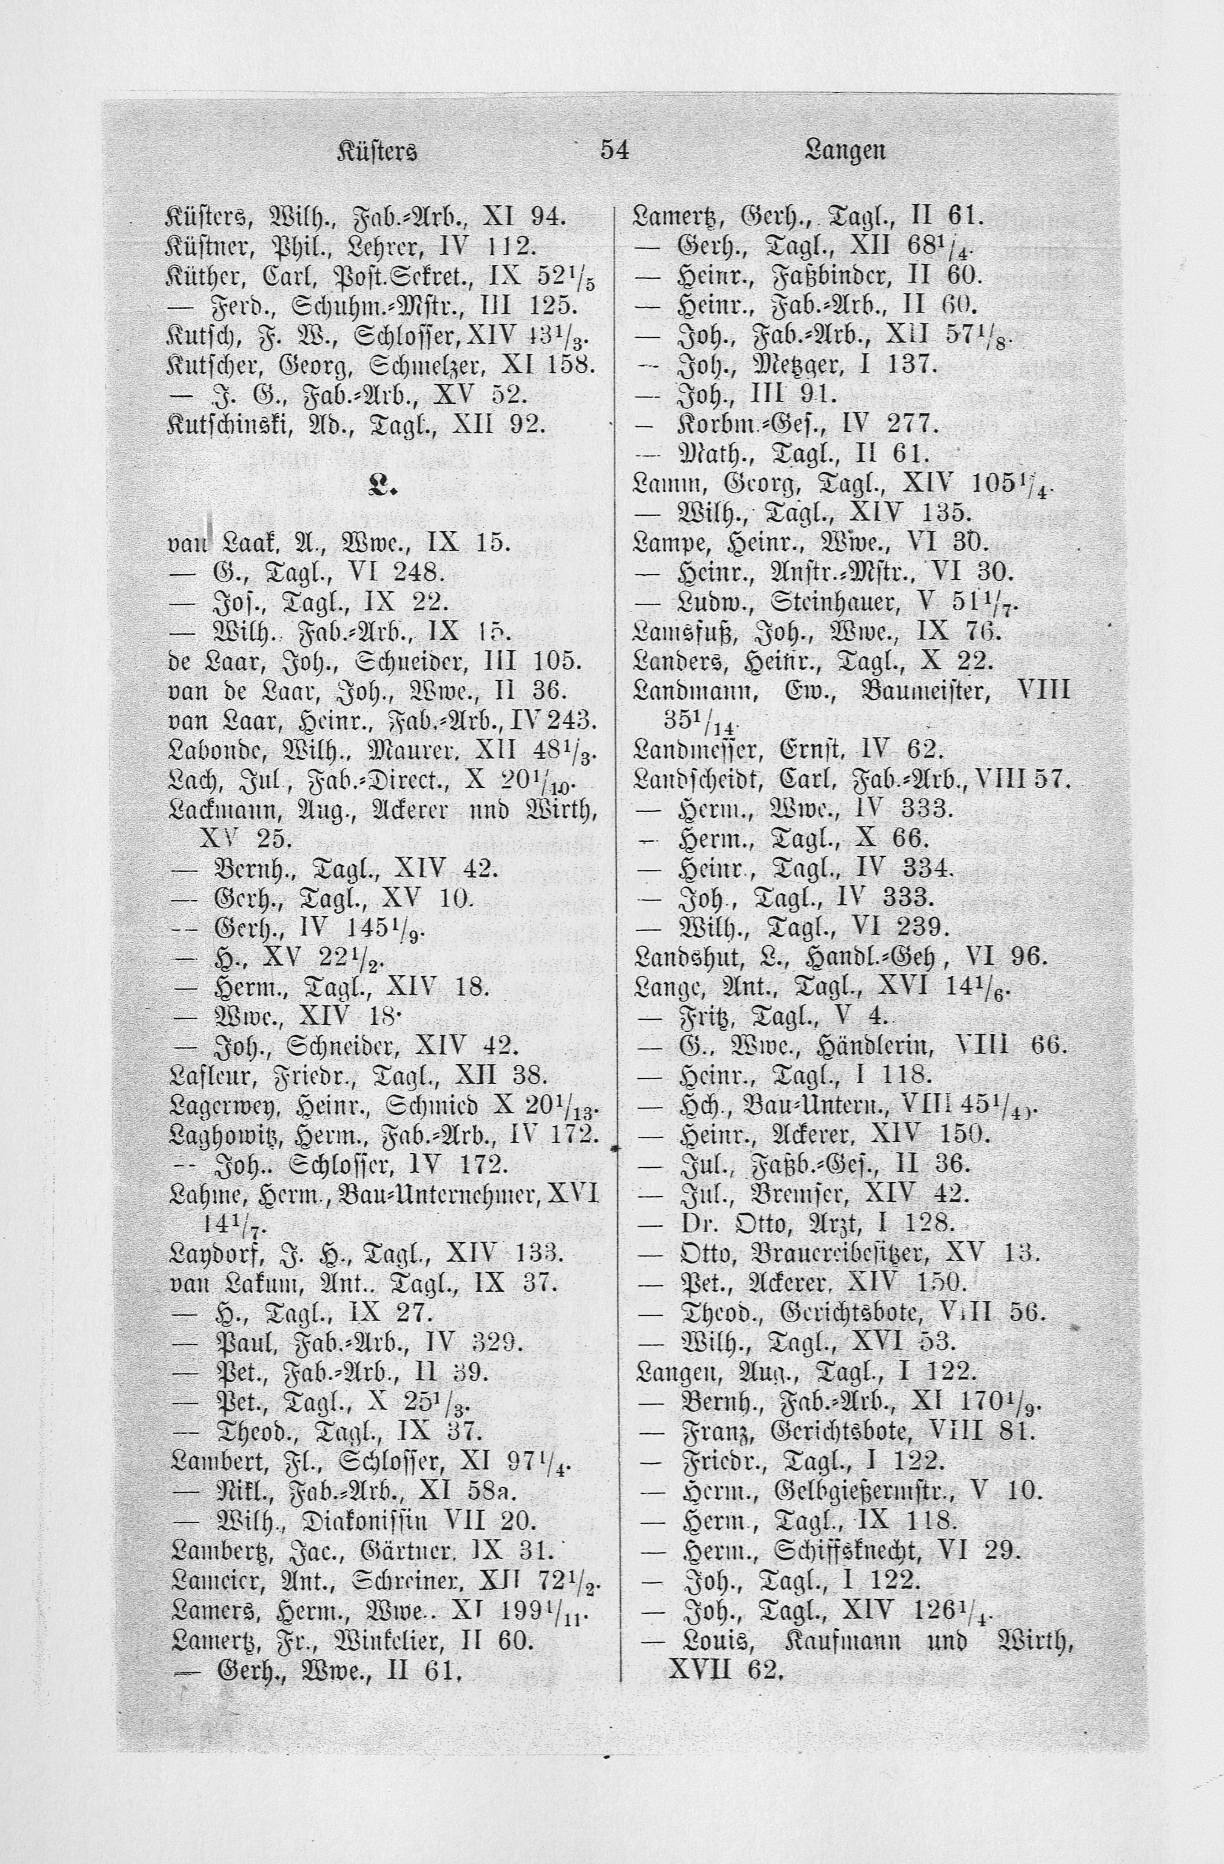 Küsters 54 Langen
Küsters, Wilh., Fab.-Arb., XI 94.
Küstner, Phil., Lehrer, IV 112.
Küther, Carl, Post.Sekret., IX 52 1/5
— Ferd., Schuhm.-Mstr., III 125.
Kutsch, F. W., Schlosser, XIV 43 1/3.
Kutscher, Georg, Schmelzer, XI 158.
— J. G., Fab.-Arb., XV 52.
Kutschinski, Ad., Tagl., XII 92.
L.
van Laak, A., Wwe., IX 15.
— G., Tagl., VI 248.
— Jos., Tagl., IX 22.
— Wilh. Fab.-Arb., IX 15.
de Laar, Joh., Schneider, III 105.
van de Laar, Joh., Wwe., II 36.
van Laar, Heinr., Fab.-Arb., IV 243.
Labonde, Wilh., Maurer, XII 48 1/3.
Lach, Jul, Fab.-Direct., X 20 1/10.
Lackmann, Aug., Ackerer und Wirth,
XV 25.
— Bernh., Tagl., XIV 42.
— Gerh., Tagl., XV 10.
— Gerh., IV 145 1/9.
— H., XV 22 1/2.
— Herm., Tagl., XIV 18.
— Wwe., XIV 18.
— Joh., Schneider, XIV 42.
Lafleur, Friedr., Tagl., XII 38.
Lagerwey, Heinr., Schmied X 20 1/13.
Laghowitz, Herm., Fab.-Arb., IV 172.
— Joh.. Schlosser, IV 172.
Lahme, Herm., Bau-Unternehmer, XVI
14 1/7.
Laydorf, J. H., Tagl., XIV 133.
van Lakum, Ant.. Tagl., IX 37.
— H., Tagl., IX 27.
— Paul, Fab.-Arb., IV 329.
— Pet., Fab.-Arb., II 39.
— Pet., Tagl., X 25 1/3.
— Theod., Tagl., IX 37.
Lambert, Fl., Schlosser, XI 97 1/4.
— Nikl., Fab.-Arb., XI 58a.
— Wilh., Diakonissin VII 20.
Lambertz, Jac., Gärtner, IX 31.
Lameier, Ant., Schreiner, XII 72 1/2.
Lamers, Herm., Wwe.. XI 199 1/11.
Lamertz, Fr., Winkelier, II 60.
— Gerh., Wwe., II 61.
Lamertz, Gerh., Tagl., II 61.
— Gerh., Tagl., XII 68 1/4.
— Heinr., Faßbinder, II 60.
— Heinr., Fab.-Arb., II 60.
— Joh., Fab.-Arb., XII 57 1/8.
— Joh., Metzger, I 137.
— Joh., III 91.
— Korbm.-Ges., IV 277.
— Math., Tagl., II 61.
Lamm, Georg, Tagl., XIV 105 1/4.
— Wilh., Tagl., XIV 135.
Lampe, Heinr., Wwe., VI 30.
— Heinr., Anstr.-Mstr., VI 30.
— Ludw., Steinhauer, V 51 1/7.
Lamsfuß, Joh., Wwe., IX 76.
Landers, Heinr., Tagl., X 22.
Landmann, Ew., Baumeister, VIII
35 1/14.
Landmesser, Ernst, IV 62.
Landscheidt, Carl, Fab.-Arb., VIII 57.
— Herm., Wwe., IV 333.
— Herm., Tagl., X 66.
— Heinr., Tagl., IV 334.
— Joh., Tagl., IV 333.
— Wilh., Tagl., VI 239.
Landshut, L., Handl.-Geh, VI 96.
Lange, Ant., Tagl., XVI 14 1/6.
— Fritz, Tagl., V 4.
— G., Wwe., Händlerin, VIII 66.
— Heinr., Tagl., I 118.
— Hch., Bau-Untern., VIII 45 1/4).
— Heinr., Ackerer, XIV 150.
— Jul., Faßb.-Ges., II 36.
— Jul., Bremser, XIV 42.
— Dr. Otto, Arzt, I 128.
— Otto, Brauereibesitzer, XV 13.
— Pet., Ackerer, XIV 150.
— Theod., Gerichtsbote, VIII 56.
— Wilh., Tagl., XVI 53.
Langen, Aug., Tagl., I 122.
— Bernh., Fab.-Arb., XI 170 1/9.
— Franz, Gerichtsbote, VIII 81.
— Friedr., Tagl., I 122.
— Herm., Gelbgießermstr., V 10.
— Herm, Tagl., IX 118.
— Herm., Schiffsknecht, VI 29.
— Joh., Tagl., I 122.
— Joh., Tagl., XIV 126 1/4.
— Louis, Kaufmann und Wirth,
XVII 62.